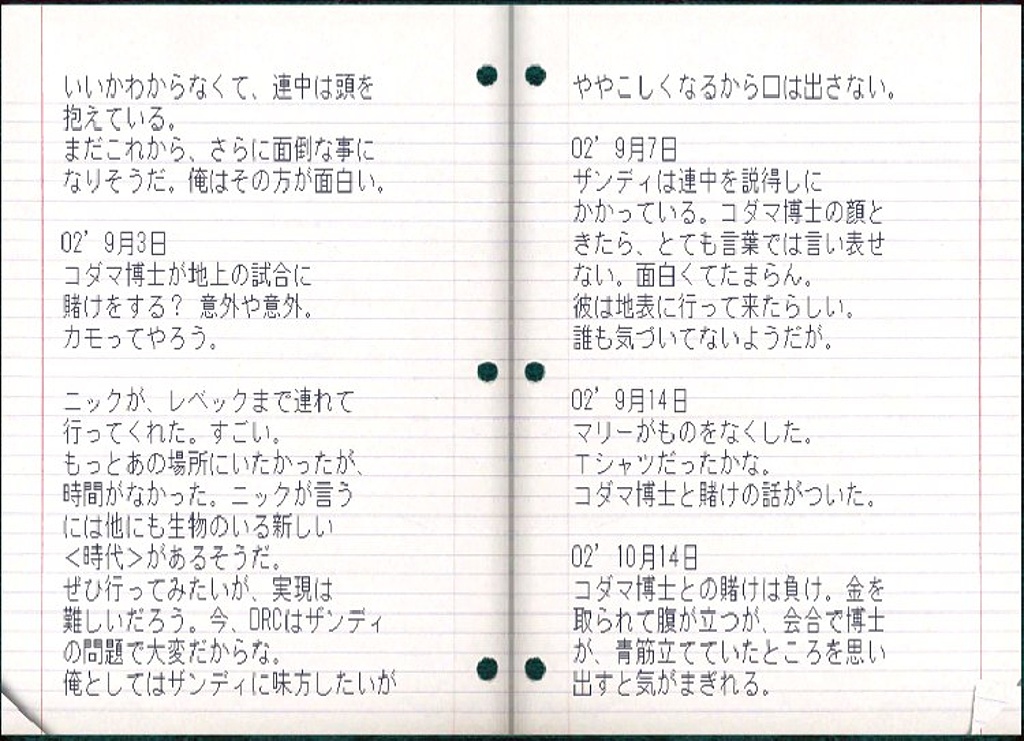 いいかわからなくて、連中は頭を
抱えている。
まだこれから、さらに面倒な事に
なりそうだ。俺はその方が面白い。
02’ 9月3日
コダマ博士が地上の試合に
賭けをする? 意外や意外。
カモってやろう。
ニックが、レベックまで連れて
行ってくれた。すごい。
もっとあの場所にいたかったが、
時間がなかった。ニックが言う
には他にも生物のいる新しい
<時代>があるそうだ。
ぜひ行ってみたいが、実現は
難しいだろう。今、DRCはザンディ
の問題で大変だからな。
俺としてはザンディに味方したいが
ややこしくなるから口は出さない。
02’ 9月7日
ザンディは連中を説得しに
かかっている。コダマ博士の顔と
きたら、とても言葉では言い表せ
ない。面白くてたまらん。
彼は地表に行って来たらしい。
誰も気づいてないようだが。
02’ 9月14日
マリーがものをなくした。
Tシャツだったかな。
コダマ博士と賭けの話がついた。
02’ 10月14日
コダマ博士との賭けは負け。金を
取られて腹が立つが、会合で博士
が、青筋立てていたところを思い
出すと気がまぎれる。